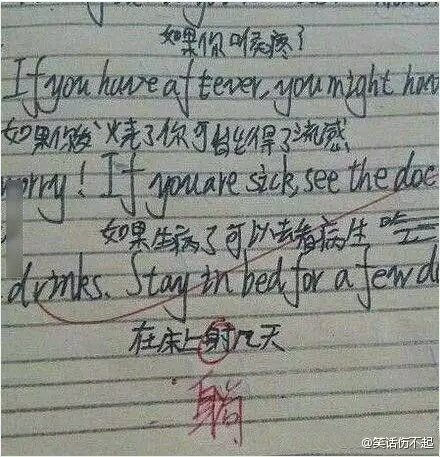 如果你喉疼了
If you have a fever, you might hav
如果你发火烧了你可能得了流感
orry! If you are sick, see the doc
如果生病了可以去看病生
drinks. Stay in bed for a few d
在床上射几天
躺
@笑话伤不起